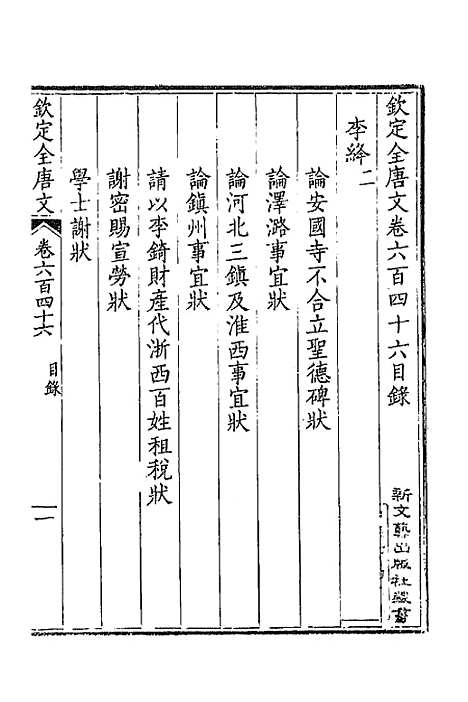 欽定全唐文卷六百四十六目錄
李絳二
論安國寺不合立聖德碑狀
論澤潞事宜狀
論河北三鎭及淮西事宜狀
論鎭州事宜狀
請以李錡財產代浙西百姓租稅狀
謝密賜宣勞狀
學士謝狀
欽定全唐文
卷六百四十六
目錄
一
新文藝出版社藏書